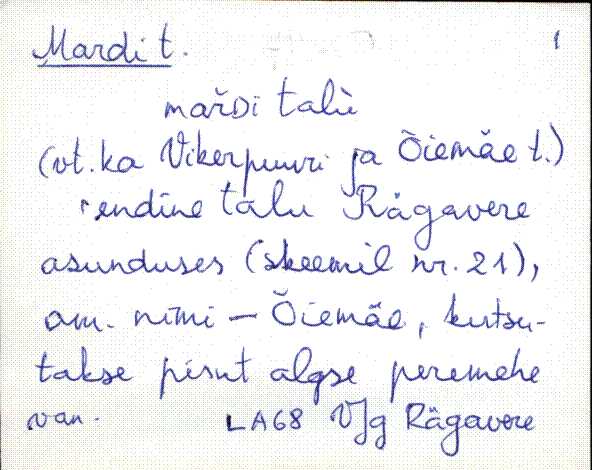 Mardi t. 1
mařDi talù
(vt. ka Vikerpuuri ja Õiemäe t.)
endine talu Rägavere
asunduses (skeemil nr. 21),
am. nimi – Õiemäe, kutsu-
takse pisut algse peremehe
van. LA68 V/Jg Rägavere